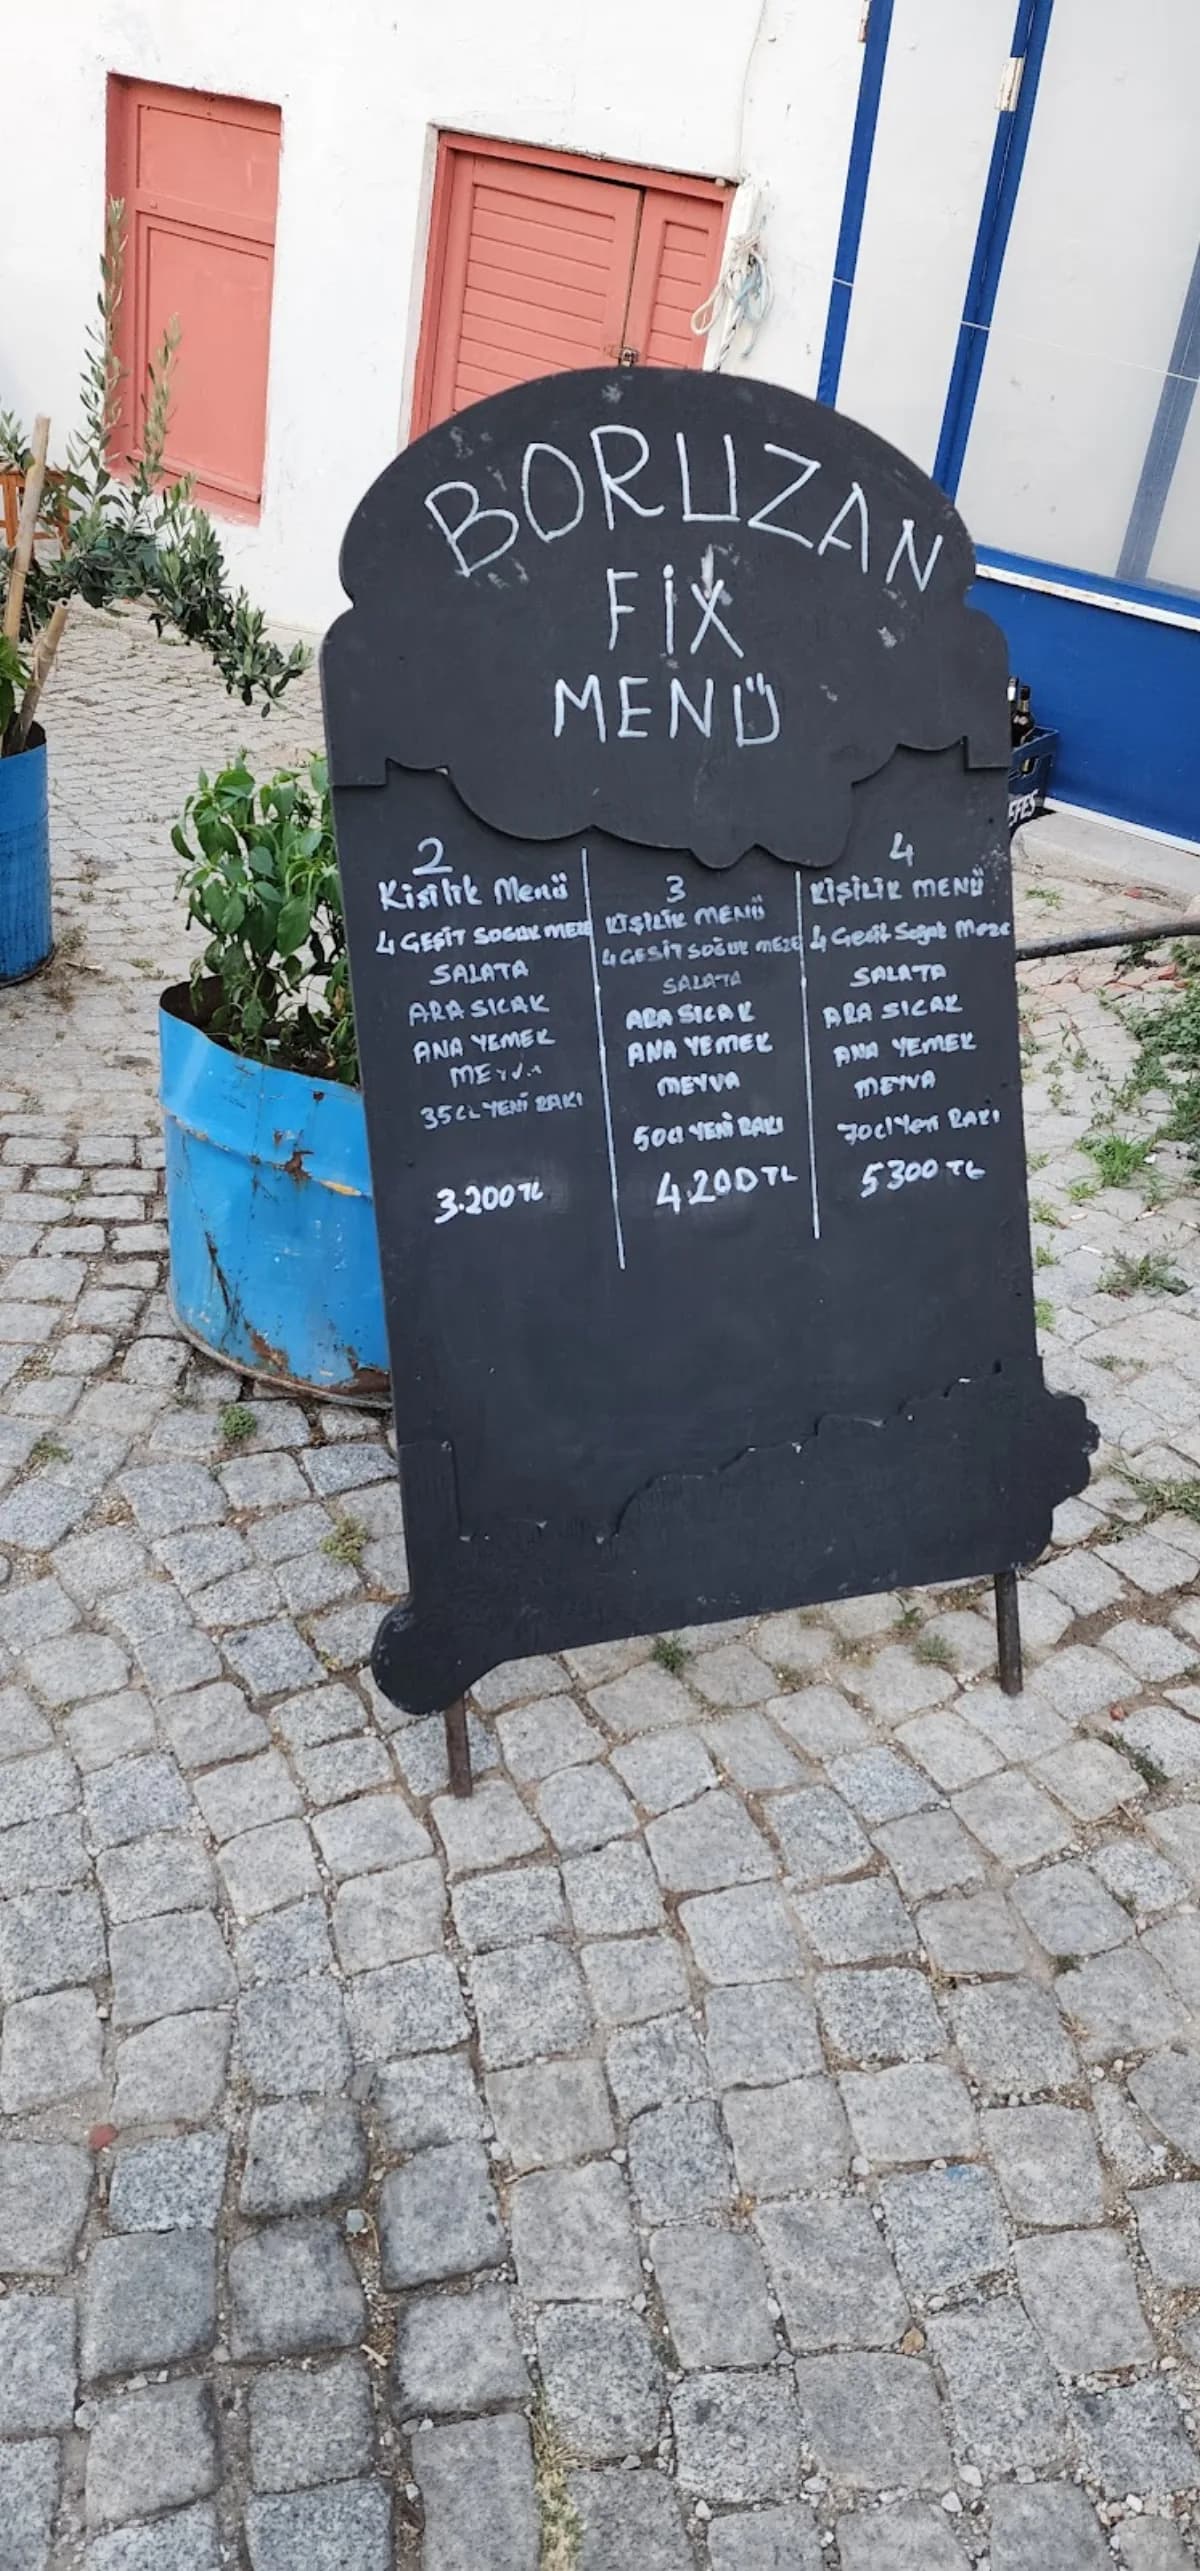 BORUZAN
FİX
MENÜ
2
Kişilik Menü
4 ÇEŞİT SOĞUK MEZE
SALATA
ARA SICAK
ANA YEMEK
MEYVA
35CL YENİ RAKI
3.200 TL
3
KİŞİLİK MENÜ
4 ÇEŞİT SOĞUK MEZE
SALATA
ARA SICAK
ANA YEMEK
MEYVA
50cl YENİ RAKI
4.200 TL
4
KİŞİLİK MENÜ
4 Çeşit Soğuk Meze
SALATA
ARA SICAK
ANA YEMEK
MEYVA
70cl Yeni RAKI
5300 TL
EFES